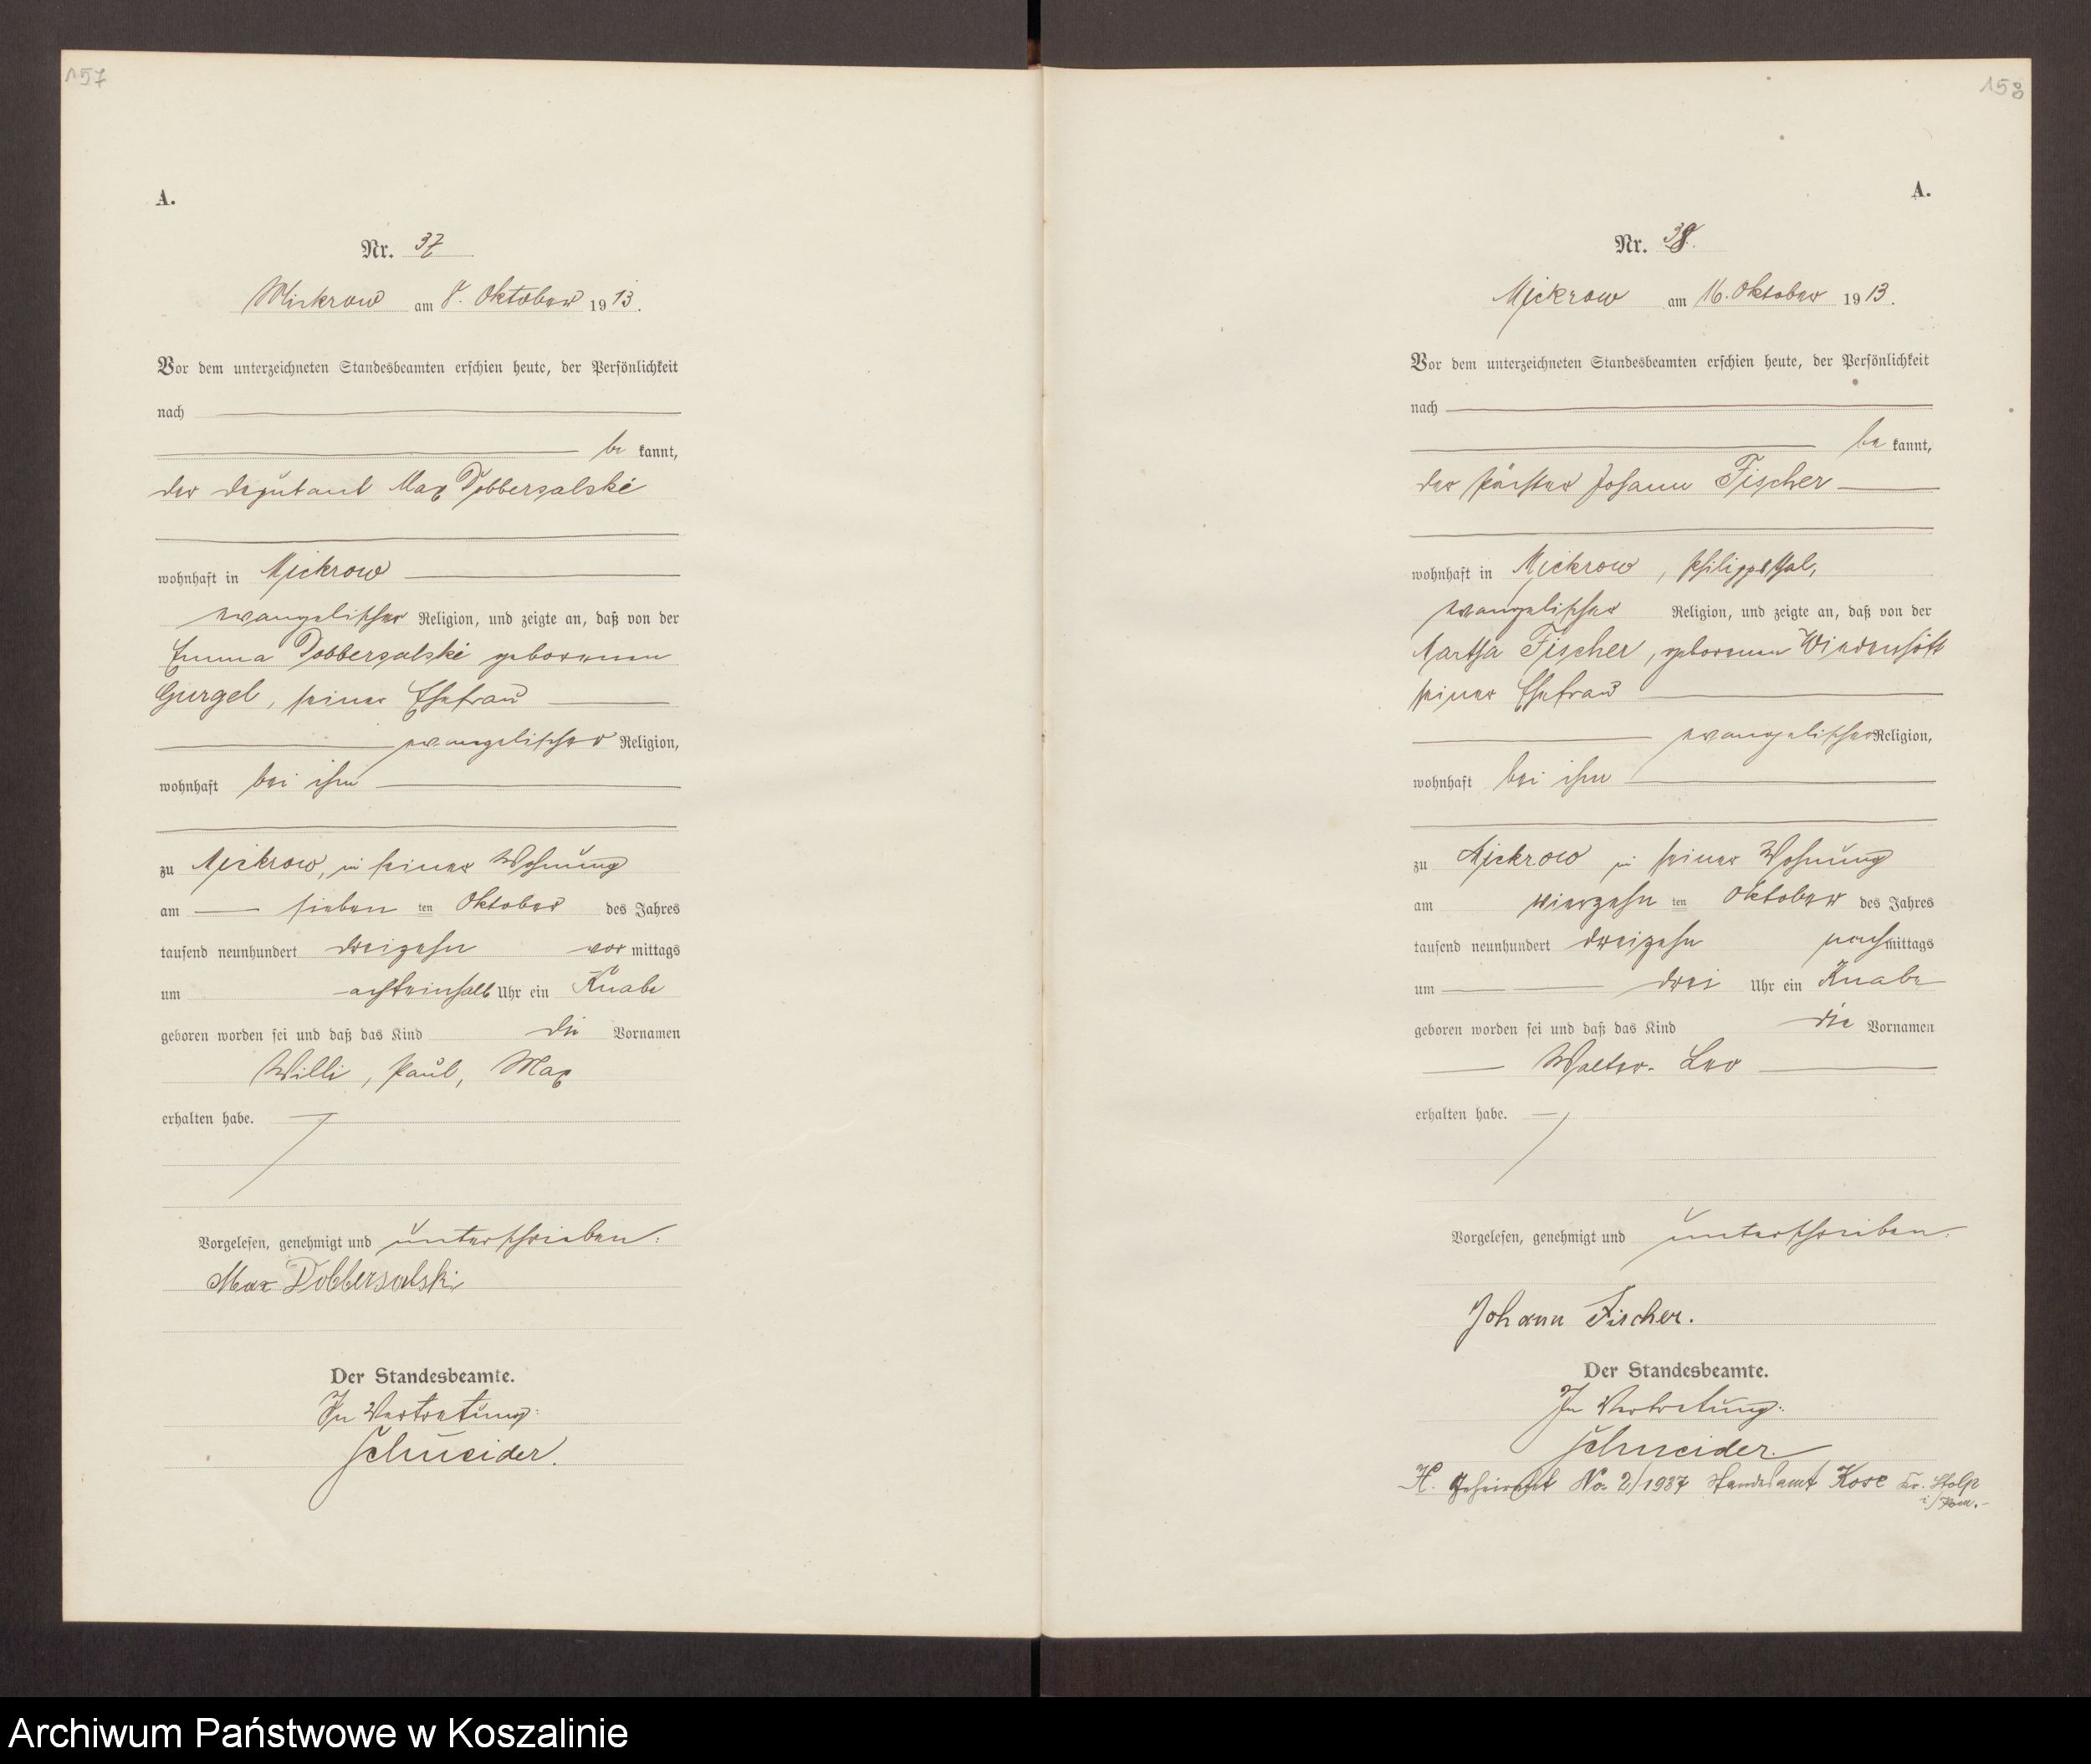 157
A.
Nr. 37
Mickrow am 8. Oktober 1913.
Vor dem unterzeichneten Standesbeamten erschien heute, der Persönlichkeit
nach
be kannt,
der Deputant Max Dobbersalski
wohnhaft in Mickrow
evangelischer Religion, und zeigte an, daß von der
Emma Dobbersalski geborenen
Gurgel, seiner Ehefrau
evangelischer Religion,
wohnhaft bei ihm
zu Mickrow, in seiner Wohnung
am sieben ten Oktober des Jahres
tausend neunhundert dreizehn vor mittags
um achteinhalb Uhr ein Knabe
geboren worden sei und daß das Kind die Vornamen
Willi, Paul, Max
erhalten habe.
Vorgelesen, genehmigt und unterschrieben:
Max Dobbersalski
Der Standesbeamte.
In Vertretung:
Schneider.
158
A.
Nr. 38.
Mickrow am 16. Oktober 1913.
Vor dem unterzeichneten Standesbeamten erschien heute, der Persönlichkeit
nach
be kannt,
der Förster Johann Fischer
wohnhaft in Mickrow, Philippsthal,
evangelischer Religion, und zeigte an, daß von der
Martha Fischer, geborenen
seiner Ehefrau
evangelischer Religion,
wohnhaft bei ihm
zu Mickrow in seiner Wohnung
am vierzehn ten Oktober des Jahres
tausend neunhundert dreizehn nachmittags
um drei Uhr ein Knabe
geboren worden sei und daß das Kind die Vornamen
Walter. Leo
erhalten habe.
Vorgelesen, genehmigt und unterschrieben.
Johann Fischer.
Der Standesbeamte.
In Vertretung:
Schneider.
H. Geheiratet No. 2/1937 Standesamt Kose Kr. Stolp
i/Pom.-
Archiwum Państwowe w Koszalinie